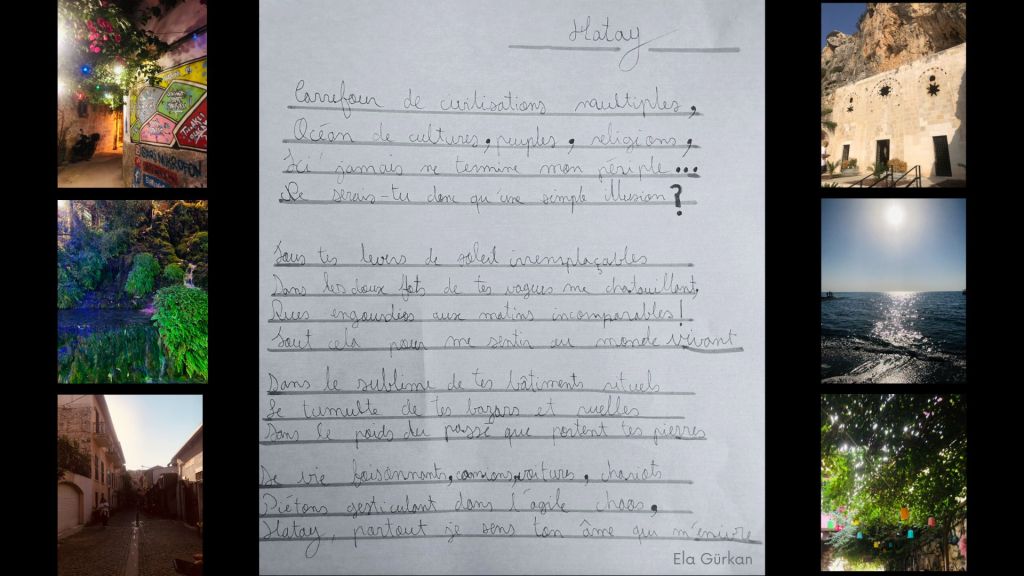 Hatay
Carrefour de civilisations multiples,
Océan de cultures, peuples, religions,
Ici jamais ne termine mon périple...
Ne serais-tu donc qu'une simple illusion?
Sous tes levers de soleil irremplaçables
Dans les doux flots de tes vagues me chatouillant,
Rues engourdies aux matins incomparables!
Tout cela pour me sentir au monde vivant
Dans le sublime de tes bâtiments rituels
Le tumulte de tes bazars et ruelles
Dans le poids du passé que portent tes pierres
De vie foisonnants, camions, voitures, chariots
Piétons gesticulant dans l'agile chaos,
Hatay, partout je sens ton âme qui m'enivre
Ela Gürkan